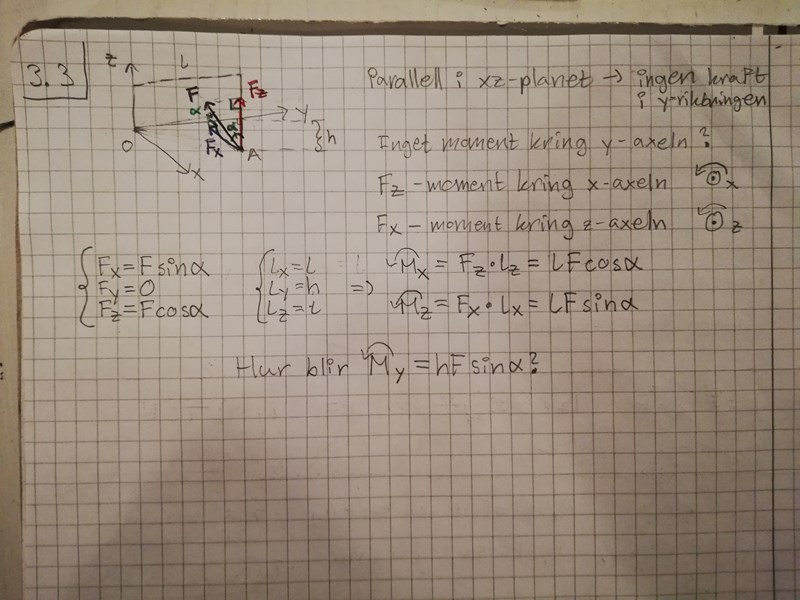 3.3
z
L
F
Fz
α
α
y
Fx
h
O
A
x
Parallell i xz-planet → ingen kraft
i y-riktningen
Inget moment kring y-axeln?
Fz - moment kring x-axeln x
Fx - moment kring z-axeln z
Fx = F sinα
Fy = 0
Fz = F cosα
Lx = L
Ly = h
Lz = L
⇒ Mx = Fz · Lz = LF cosα
Mz = Fx · Lx = LF sinα
Hur blir My = hF sinα?